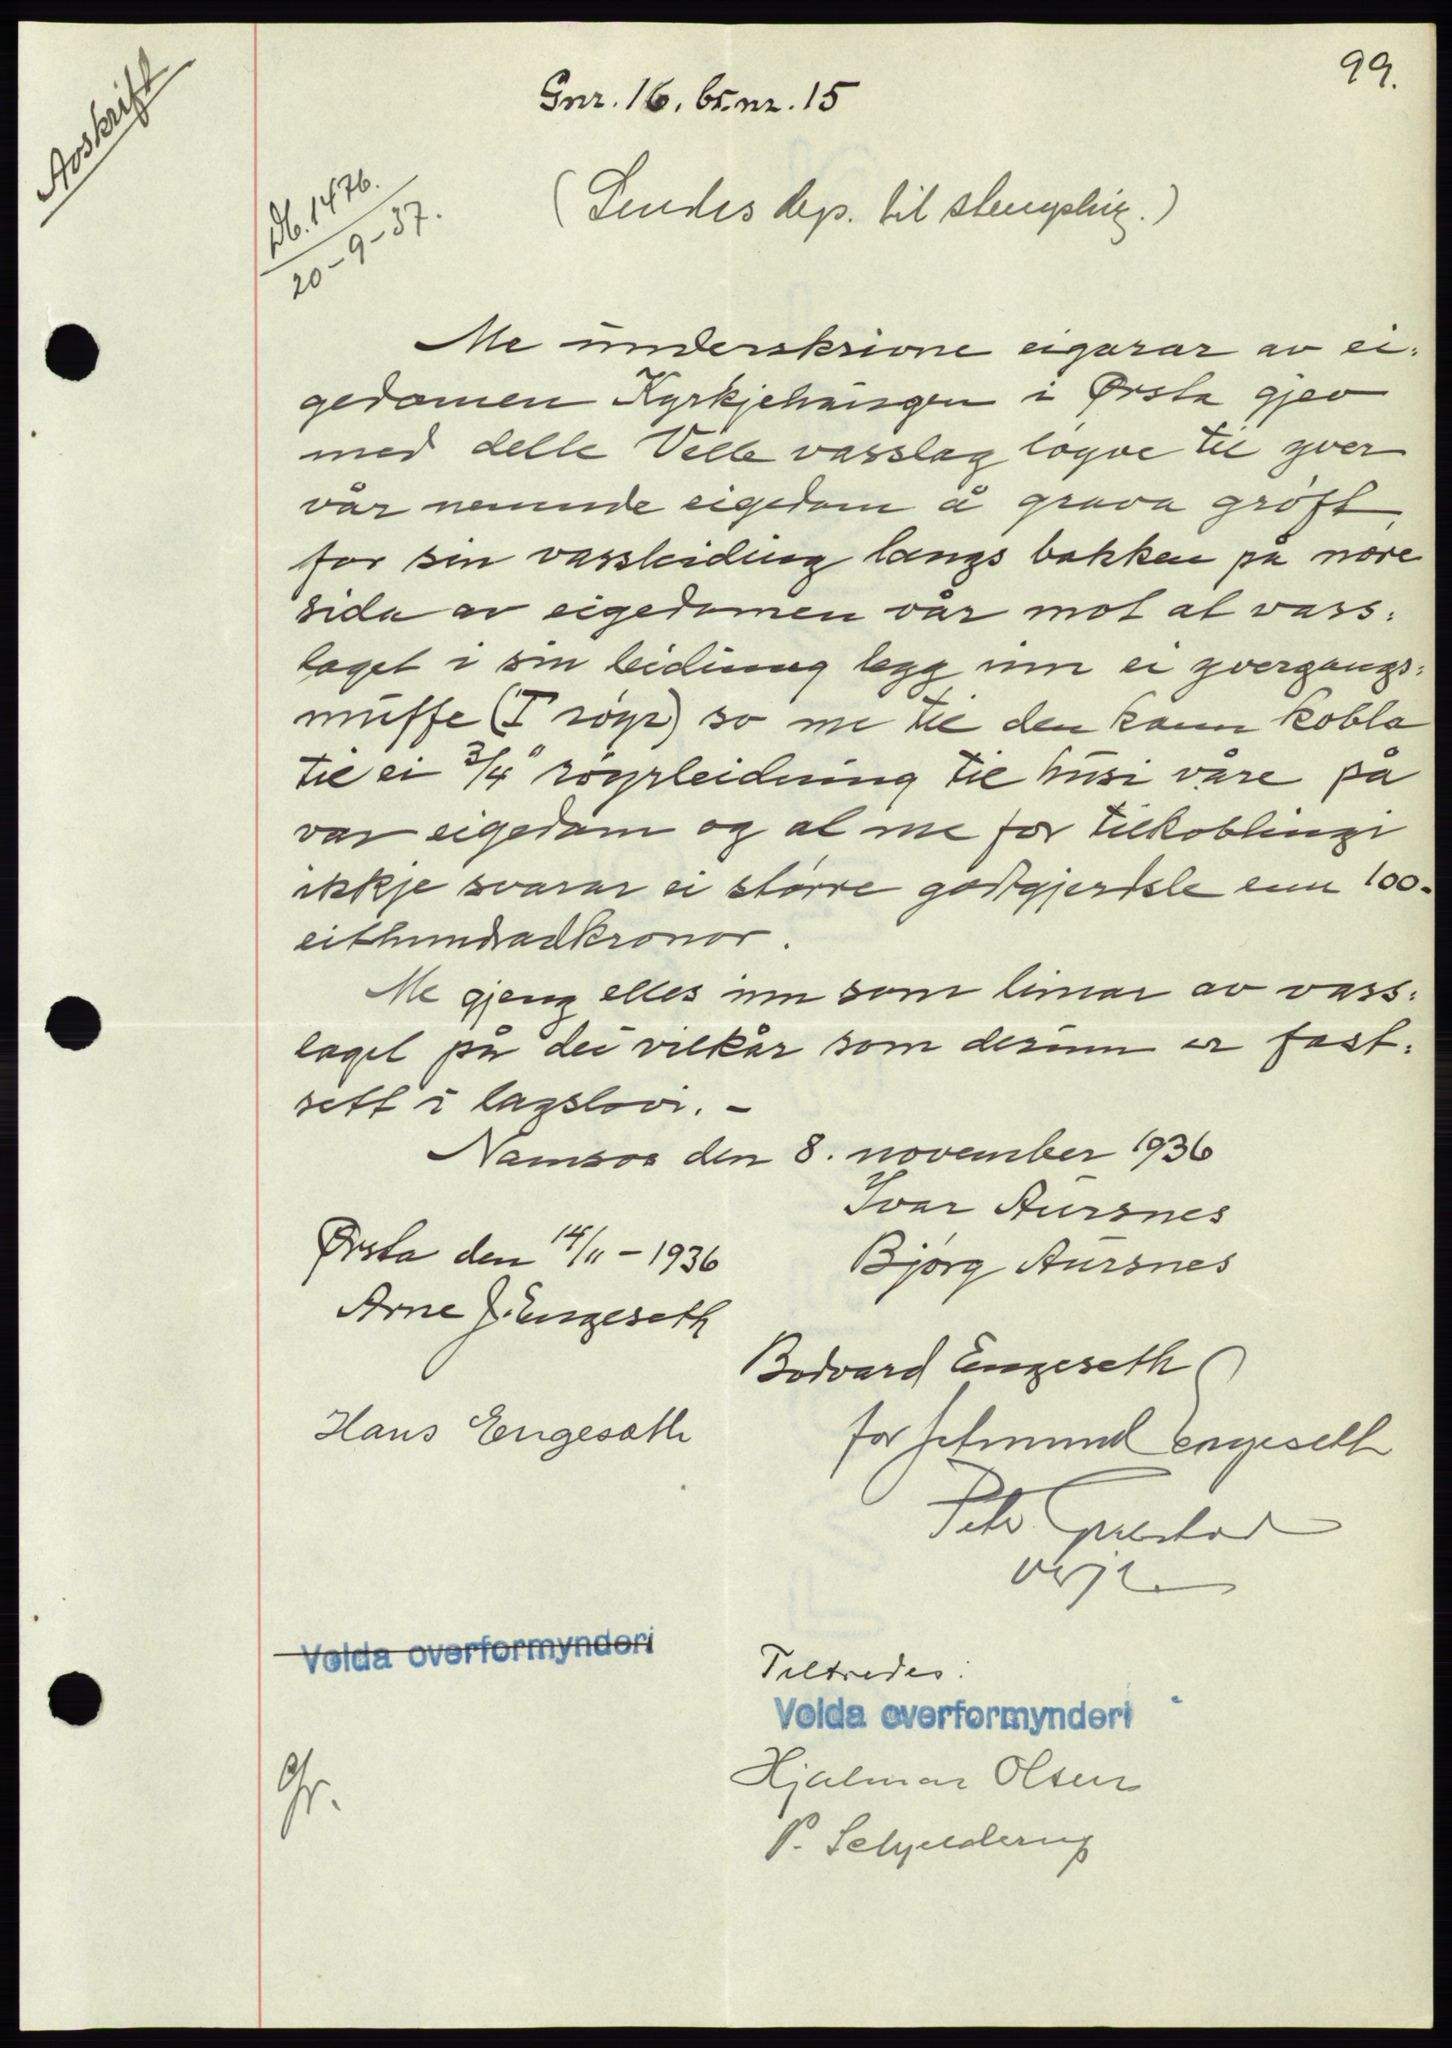 99.
Avskrift
Gnr. 16, br.nr. 15
Db. 1476.
20-9-37.
(Sendes dep. til
Me underskrivne eigarar av ei-
gedomen Kyrkjehaugen i Ørsta gjev
med dette Velle vasslag løyve til yver
vår nemnde eigedom å grava grøft
for sin vassleiding langs bakken på nore
sida av eigedomen vår mot at vass-
laget i sin leidning legg inn ei yvergangs-
muffe (T røyr) so me til den kann kobla
til ei 3/4" røyrleidning til husi våre på
vår eigedom og at me for tilkoblingi
ikkje svarar ei større godtgjerdsle enn 100-
eithundradkronor.
Me gjeng elles inn som limar av vass-
laget på dei vilkår som derinn er fast-
sett i lagslovi. -
Namsos den 8. november 1936
Ivar Aursnes
Ørsta den 14/11 - 1936
Bjørg Aursnes
Arne J. Engeseth
Bodvard Engeseth
Hans Engeseth
for Jetmund Engeseth
verje
Volda overformynderi
Tiltredes:
Volda overformynderi
Hjalmar Olsen
P. Schjelderup
Gr.